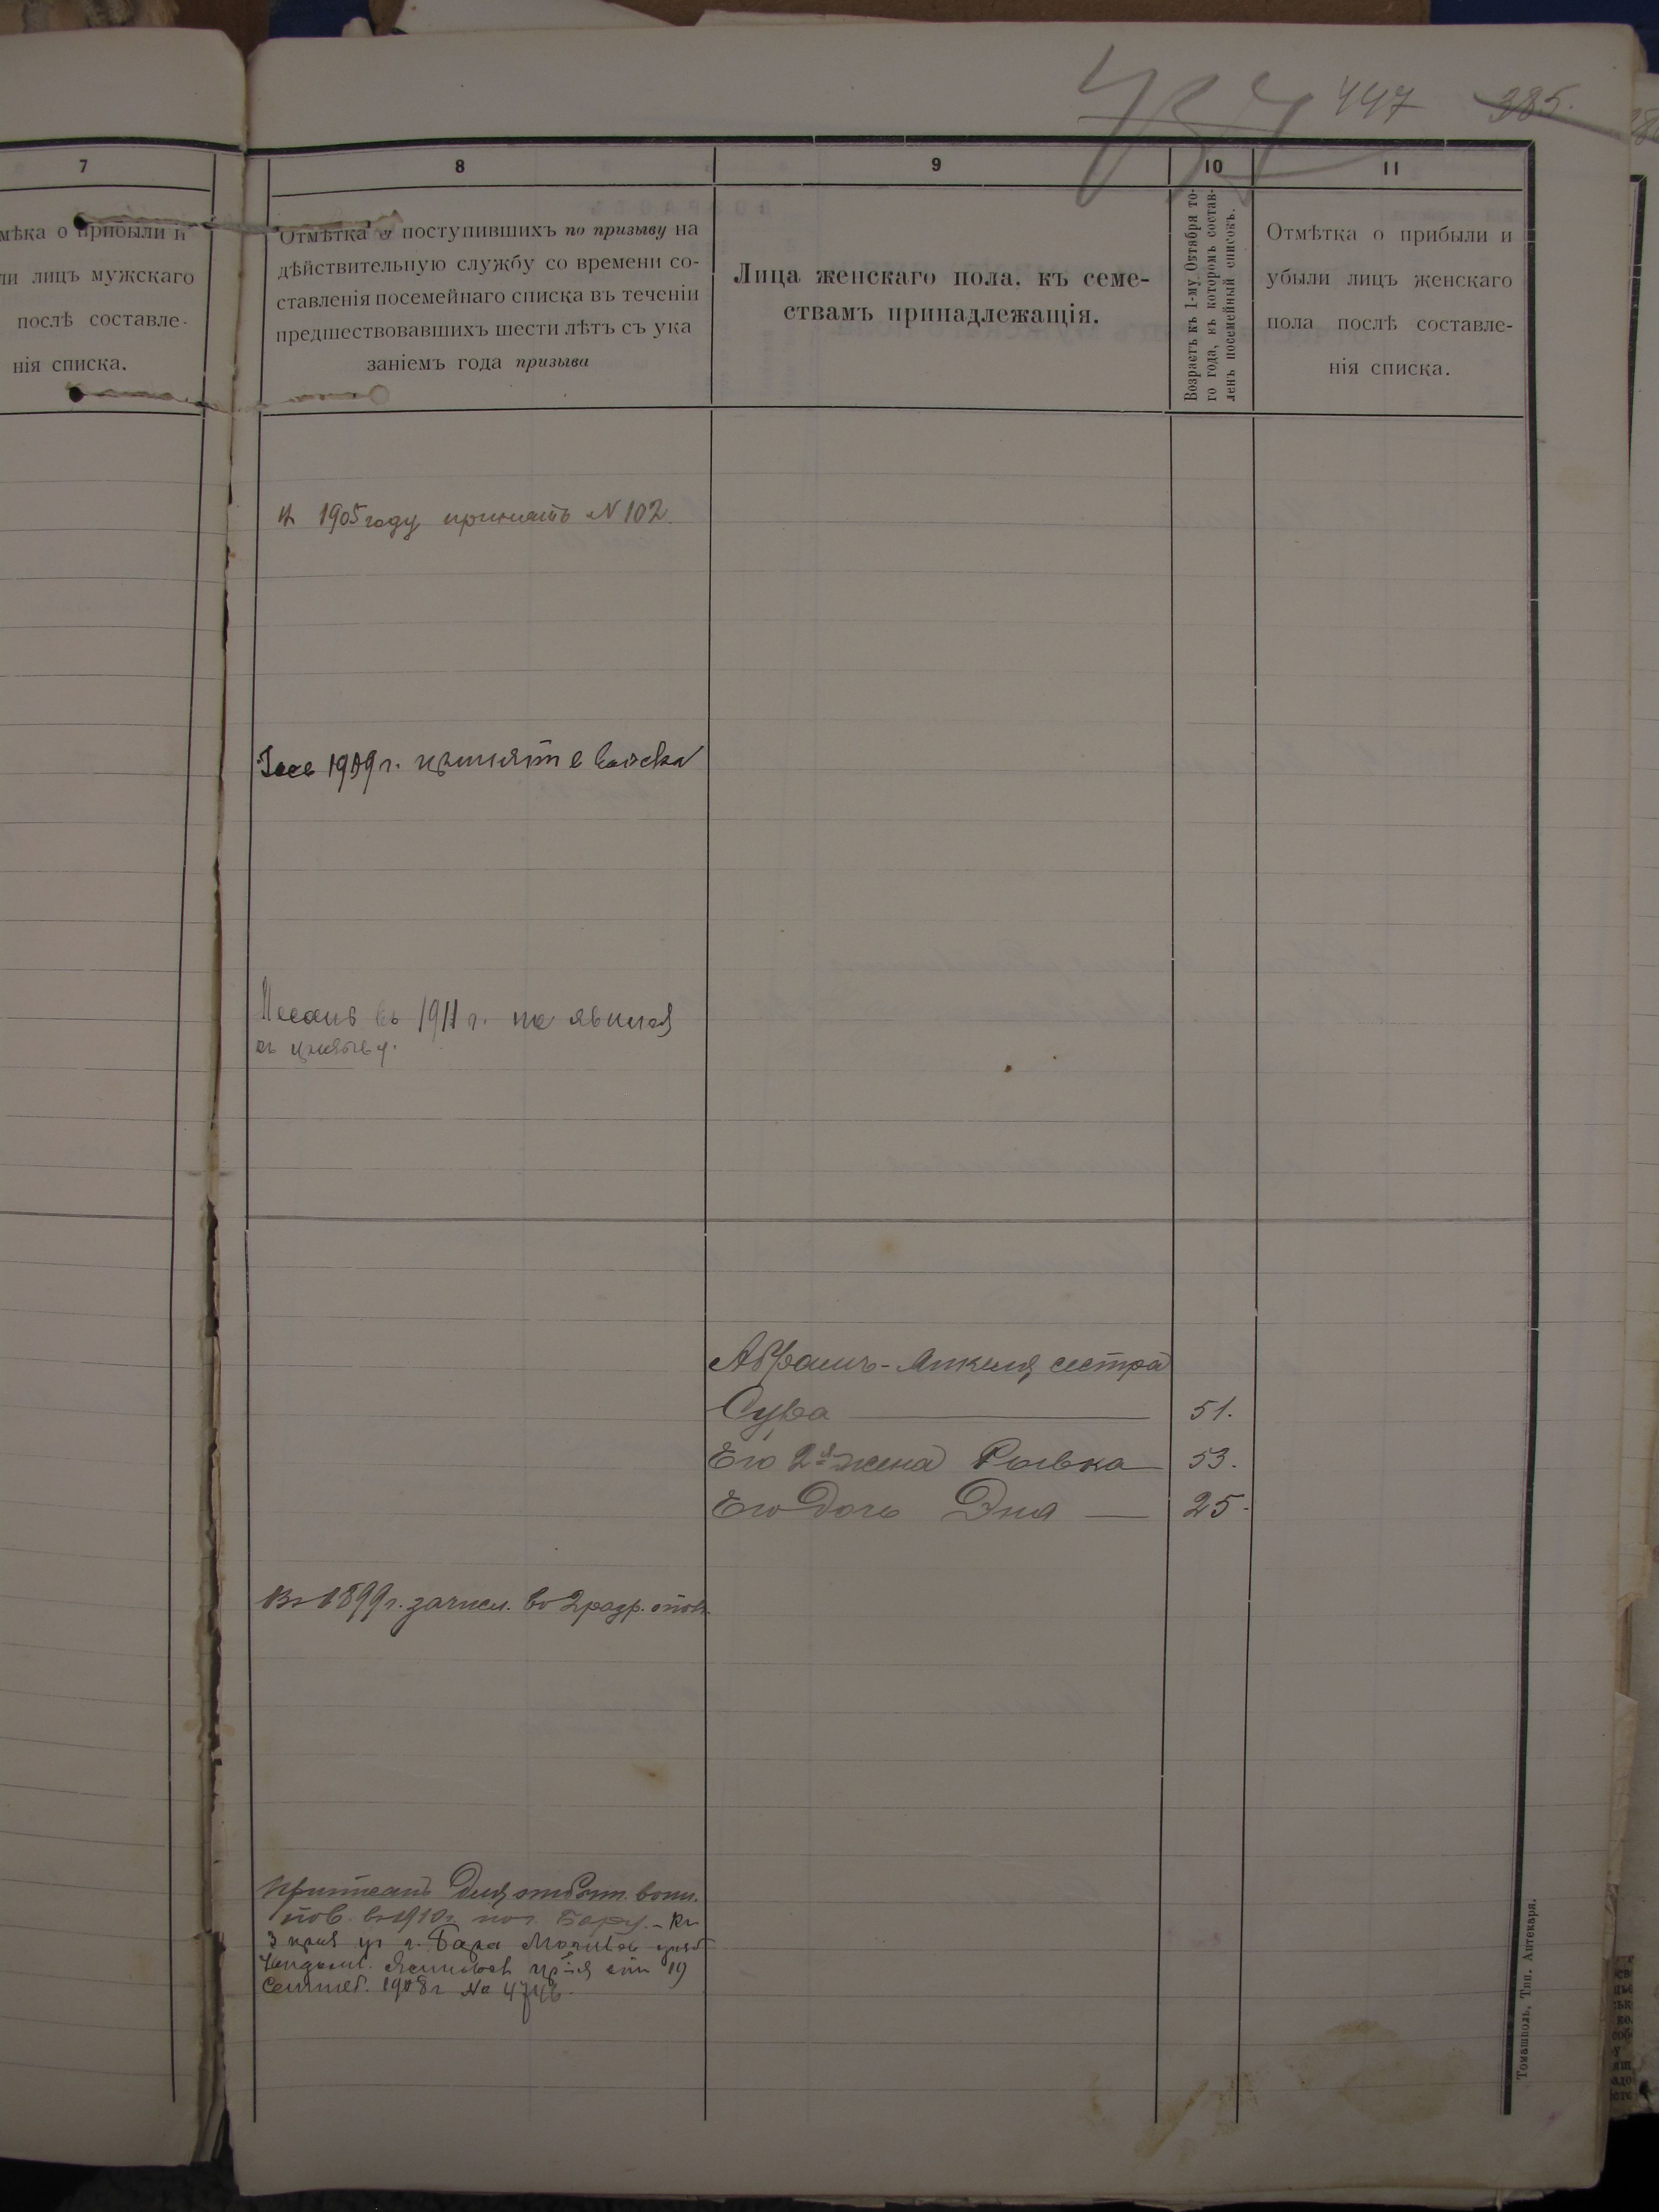 447 385.
7
мѣка о прибыли и
ли лицъ мужскаго
послѣ составле-
нія списка.
8
Отмѣтка о поступившихъ по призыву на
дѣйствительную службу со времени со-
ставленія посемейнаго списка въ теченіи
предшествовавшихъ шести лѣтъ съ ука
заніемъ года призыва
9
Лица женскаго пола, къ семе-
ствамъ принадлежащія.
10
Возрастъ къ 1-му Октября то-
го года, въ которомъ состав-
ленъ посемейный списокъ.
11
Отмѣтка о прибыли и
убыли лицъ женскаго
пола послѣ составле-
нія списка.
1905 году принятъ N 102.
1909 г. принят в войска
въ 1911 г. не явился
Абрамъ- сестра
Сура 51.
Его 2я жена Рывка 53.
Его дочь Эня 25.
Въ 1899 г. зачисл. во 2 разр. опол.
для отбыт. воин.
пов. въ 1910 г. по г. Бару.
г. Бара Могилев.
19
Сентяб. 1908 г. No
Томашполь, Тип. Аптекаря.